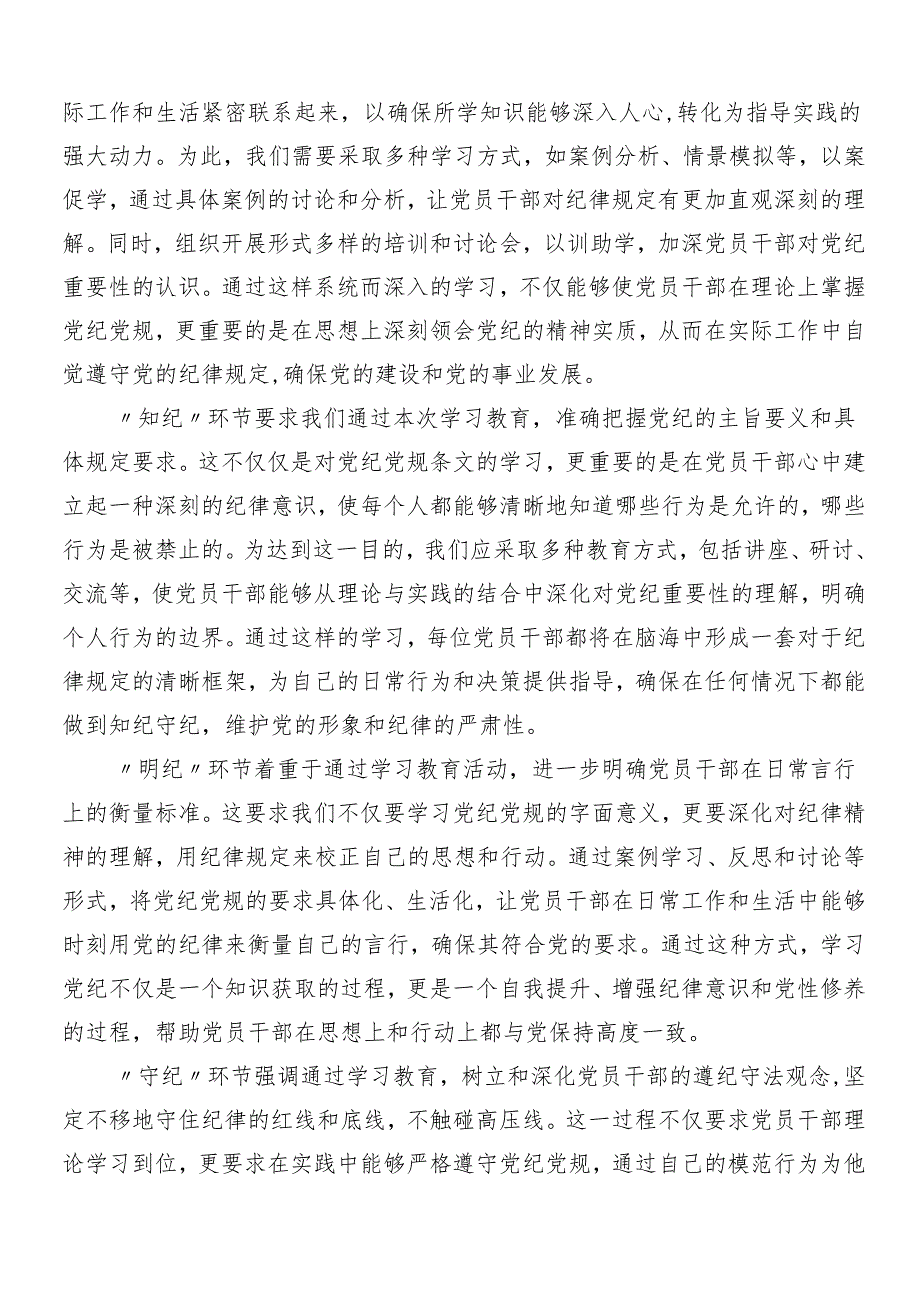 际工作和生活紧密联系起来，以确保所学知识能够深入人心,转化为指导实践的
强大动力。为此，我们需要采取多种学习方式，如案例分析、情景模拟等，以案
促学，通过具体案例的讨论和分析，让党员干部对纪律规定有更加直观深刻的理
解。同时，组织开展形式多样的培训和讨论会，以训助学，加深党员干部对党纪
重要性的认识。通过这样系统而深入的学习，不仅能够使党员干部在理论上掌握
党纪党规，更重要的是在思想上深刻领会党纪的精神实质，从而在实际工作中自
觉遵守党的纪律规定,确保党的建设和党的事业发展。
〃知纪〃环节要求我们通过本次学习教育，准确把握党纪的主旨要义和具
体规定要求。这不仅仅是对党纪党规条文的学习，更重要的是在党员干部心中建
立起一种深刻的纪律意识，使每个人都能够清晰地知道哪些行为是允许的，哪些
行为是被禁止的。为达到这一目的，我们应采取多种教育方式，包括讲座、研讨、
交流等，使党员干部能够从理论与实践的结合中深化对党纪重要性的理解，明确
个人行为的边界。通过这样的学习，每位党员干部都将在脑海中形成一套对于纪
律规定的清晰框架，为自己的日常行为和决策提供指导，确保在任何情况下都能
做到知纪守纪，维护党的形象和纪律的严肃性。
〃明纪〃环节着重于通过学习教育活动，进一步明确党员干部在日常言行
上的衡量标准。这要求我们不仅要学习党纪党规的字面意义，更要深化对纪律精
神的理解，用纪律规定来校正自己的思想和行动。通过案例学习、反思和讨论等
形式，将党纪党规的要求具体化、生活化，让党员干部在日常工作和生活中能够
时刻用党的纪律来衡量自己的言行，确保其符合党的要求。通过这种方式，学习
党纪不仅是一个知识获取的过程，更是一个自我提升、增强纪律意识和党性修养
的过程，帮助党员干部在思想上和行动上都与党保持高度一致。
〃守纪〃环节强调通过学习教育，树立和深化党员干部的遵纪守法观念,坚
定不移地守住纪律的红线和底线，不触碰高压线。这一过程不仅要求党员干部理
论学习到位，更要求在实践中能够严格遵守党纪党规，通过自己的模范行为为他